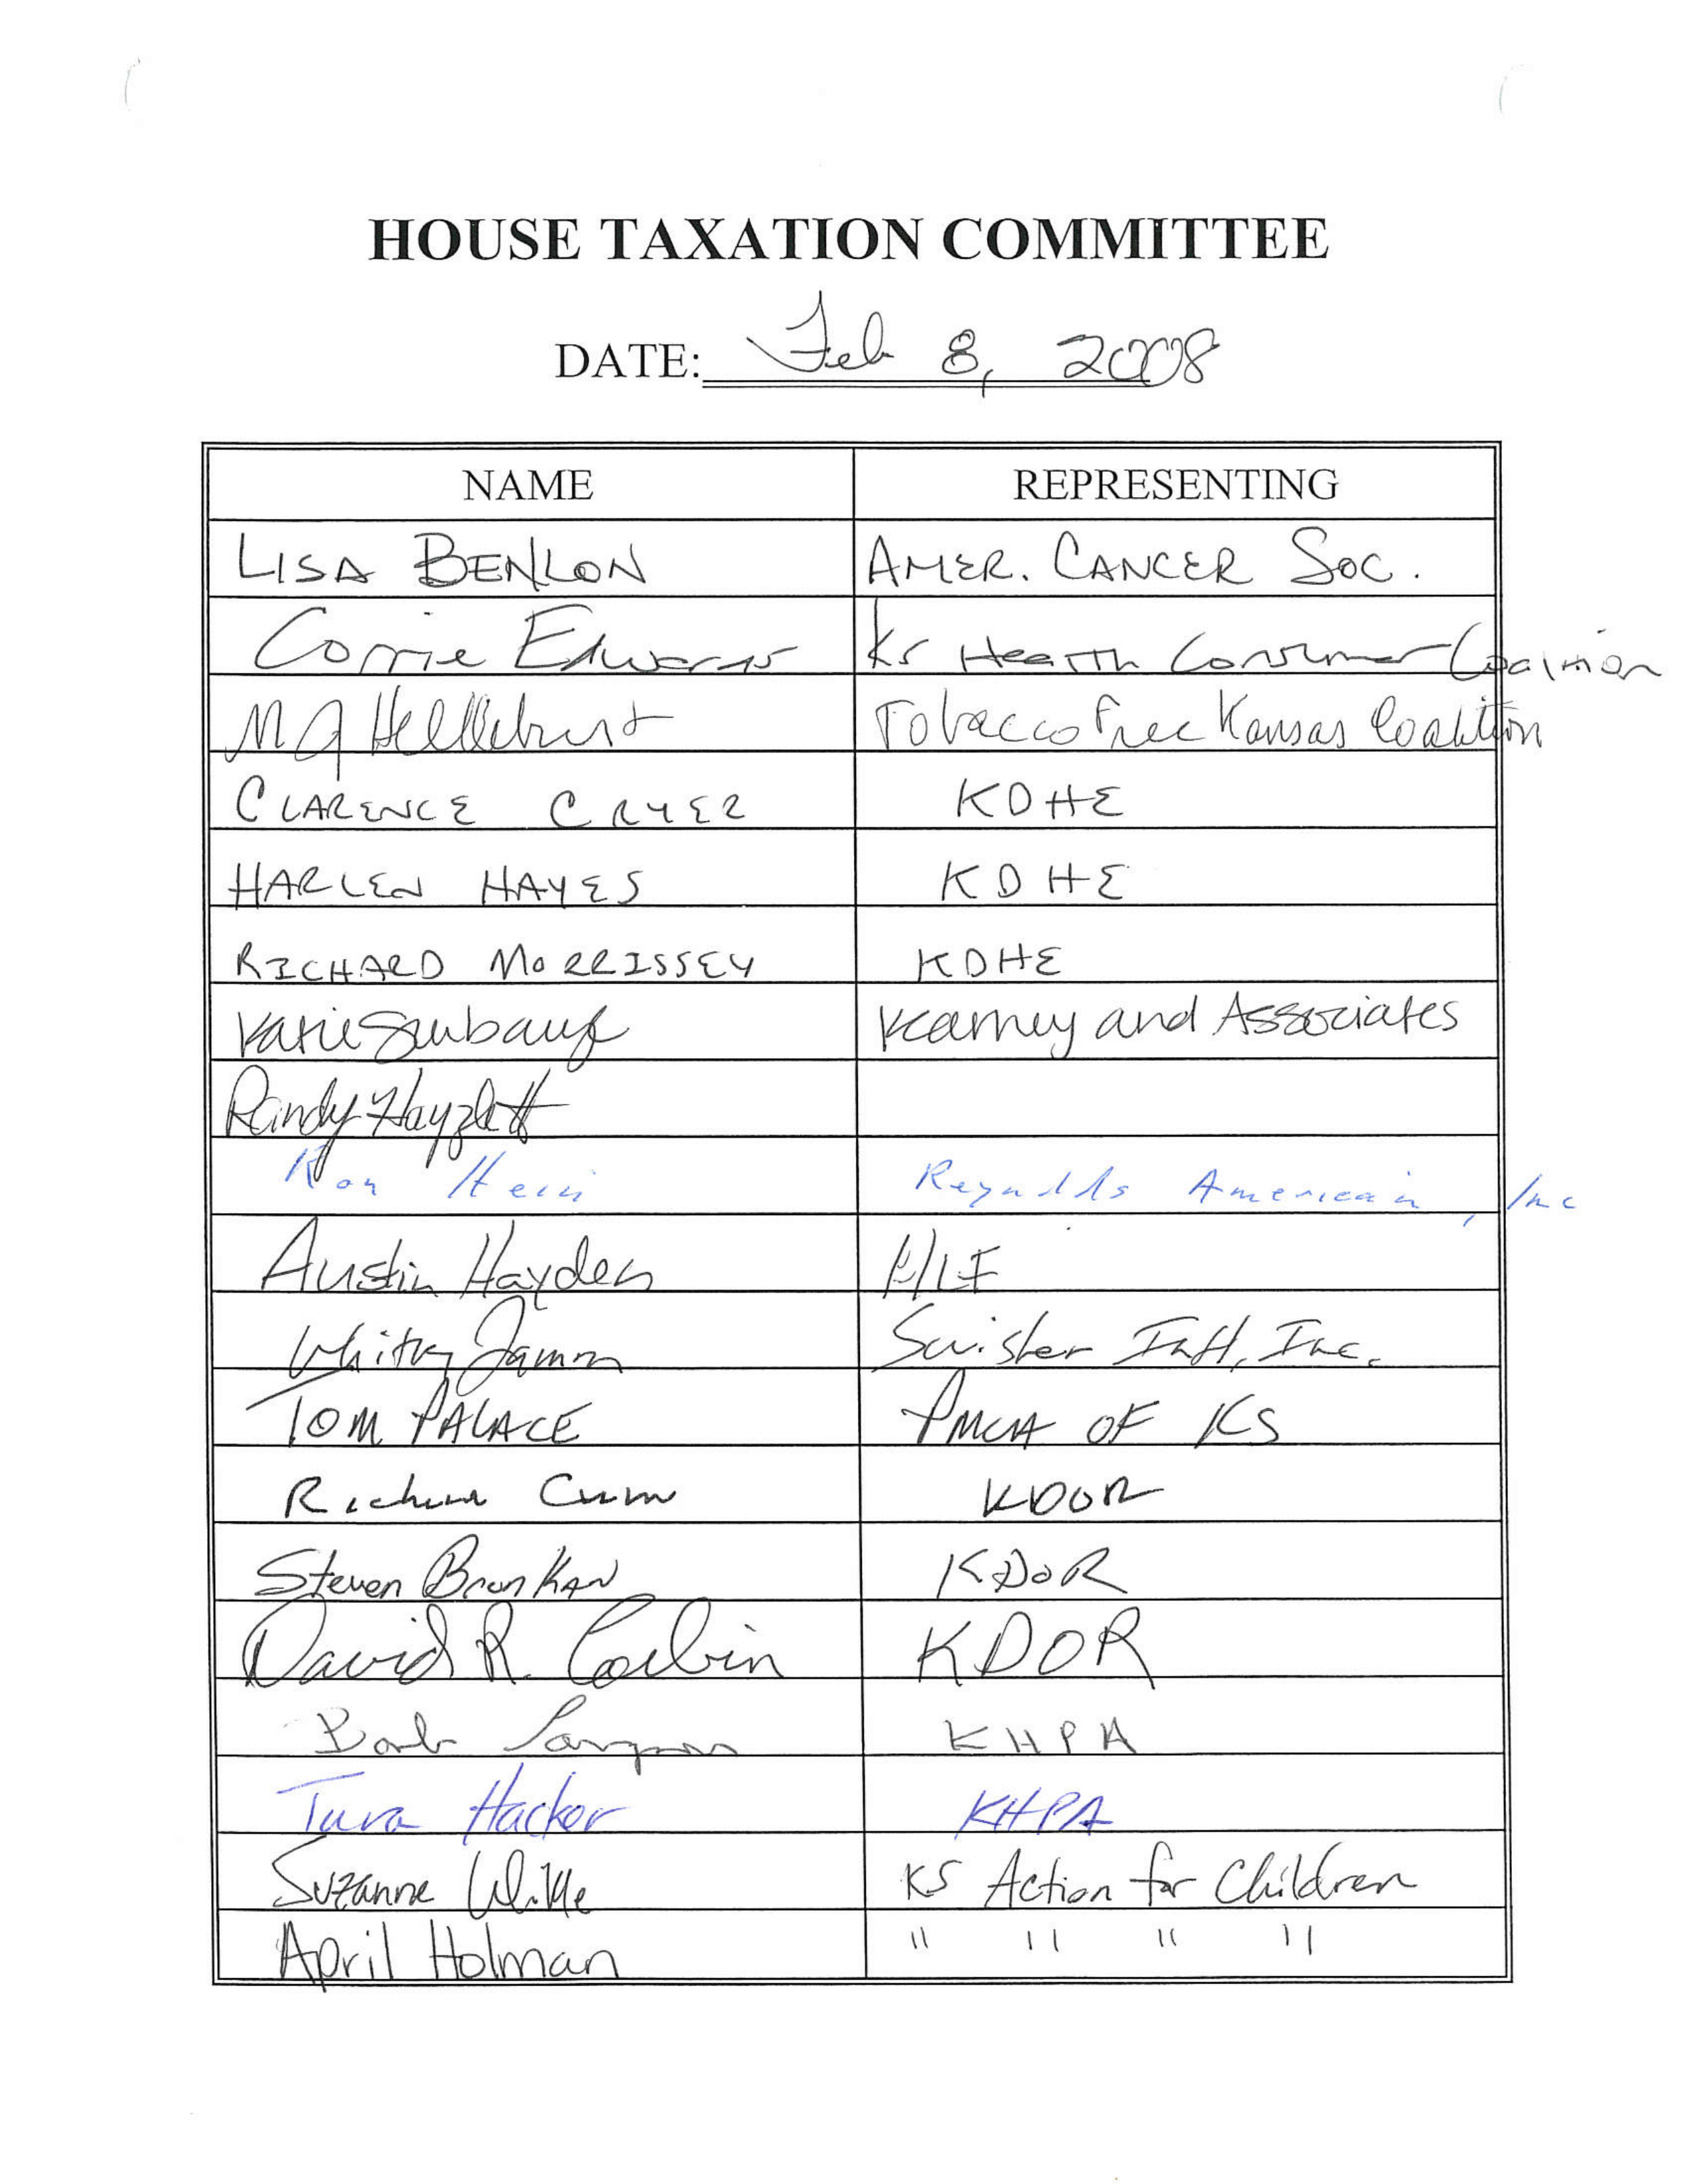 HOUSE TAXATION COMMITTEE
DATE: Feb 8, 2008
NAME REPRESENTING
LISA BENLON AMER. CANCER SOC.
Corrie Edwards KS Health Consumer Coalition
MJ Hellebust Tobacco Free Kansas Coalition
CLARENCE CRYER KDHE
HARLEN HAYES KDHE
RICHARD MORRISSEY KDHE
Katie Kearney and Associates
Randy Hayzlett
Ron Hein Reynolds American, Inc
Austin Hayden
Whitney Damron Swisher Int'l, Inc.
TOM PALACE PMCA OF KS
Richard Cram KDOR
Steven Brunkan KDOR
David R. Corbin KDOR
Barb KHPA
Tara Hacker KHPA
Suzanne Wikle KS Action for Children
April Holman " " " "